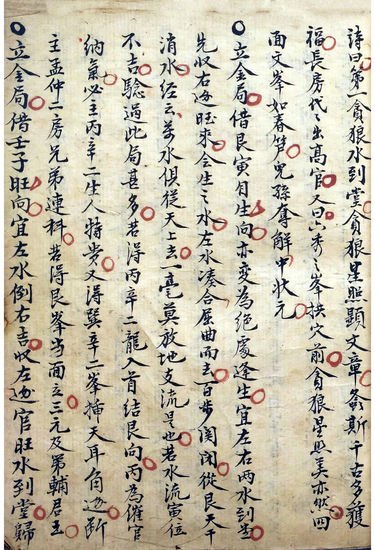 詩曰第一貪狼水到堂貪狼星照顯文章螽斯千古多獲
福長房代々出高官又曰六秀之峯拱穴前貪狼星照美亦然四
面文峯如春笋兒孫奪解中狀元
立金局借艮寅自生向亦变為絕處逢生宜左右两水到堂
先收右边旺來会生之水左水凑合屈曲而去百步闌闭從艮天干
消水经云茅水俱從天上去一毫莫放地支流是也若水流寅位
不吉驗過此局甚多若得丙辛二龍入首結艮向丙為催官
納氣必主丙辛二生人特貴又得巽辛二峯插天耳角边断
主孟仲二房兄弟連科若得艮峯当面立三元及第輔君王
立金局借壬子旺向宜左水倒右吉收左边官旺水到堂歸